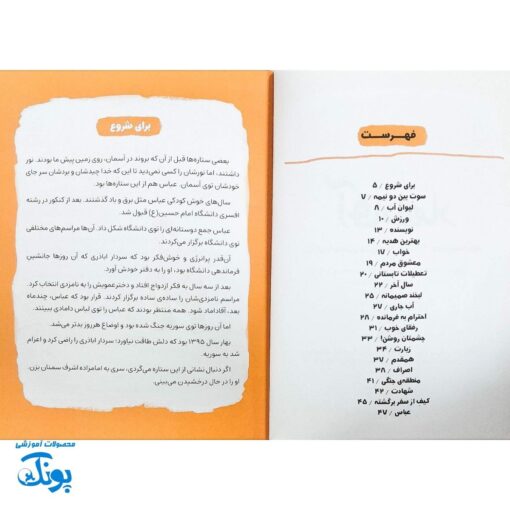 فهرست
برای شروع / ۵
سوت بین دو نیمه / ۷
لیوان آب / ۸
ورزش / ۱۰
نویسنده / ۱۳
بهترین هدیه / ۱۴
خواب / ۱۷
معشوق مردم / ۱۹
تعطیلات تابستانی / ۲۰
سال آخر / ۲۲
لبخند صمیمانه / ۲۵
آب جاری / ۲۷
احترام به فرمانده / ۲۸
رفقای خوب / ۳۱
چشمتان روشن! / ۳۳
زیارت / ۳۴
همقدم / ۳۷
اصراف / ۳۸
منطقه‌ی جنگی / ۴۱
شهادت / ۴۲
کیف از سفر برگشته / ۴۵
عباس / ۴۷
برای شروع
بعضی ستاره‌ها قبل از آن که بروند در آسمان، روی زمین پیش ما بودند. نور
داشتند، اما نورشان را کسی نمی‌دید تا این که خدا چیدشان و بردشان سر جای
خودشان توی آسمان. عباس هم از این ستاره‌ها بود.
سال‌های خوش کودکی عباس مثل برق و باد گذشتند. بعد از کنکور در رشته
افسری دانشگاه امام حسین(ع) قبول شد.
عباس جمع دوستانه‌ای را توی دانشگاه شکل داد. آن‌ها مراسم‌های مختلفی
توی دانشگاه برگزار می‌کردند.
آن‌قدر پرانرژی و خوش‌فکر بود که سردار اباذری که آن روزها جانشین
فرماندهی دانشگاه بود، او را به دفتر خودش آورد.
بعد از سه سال به فکر ازدواج افتاد و دخترعمویش را به نامزدی انتخاب کرد.
مراسم نامزدی‌شان را ساده‌ی ساده برگزار کردند. قرار بود که عباس، چندماه
بعد، آقاداماد شود. همه منتظر بودند که عباس را توی لباس دامادی ببینند.
اما آن روزها توی سوریه جنگ شده بود و اوضاع هرروز بدتر می‌شد.
بهار سال ۱۳۹۵ بود که دلش طاقت نیاورد؛ سردار اباذری را راضی کرد و اعزام
شد به سوریه.
اگر دنبال نشانی از این ستاره می‌گردی، سری به امامزاده اشرف سمنان بزن.
او را در حال درخشیدن می‌بینی.
محصولات آموزشی
پونک